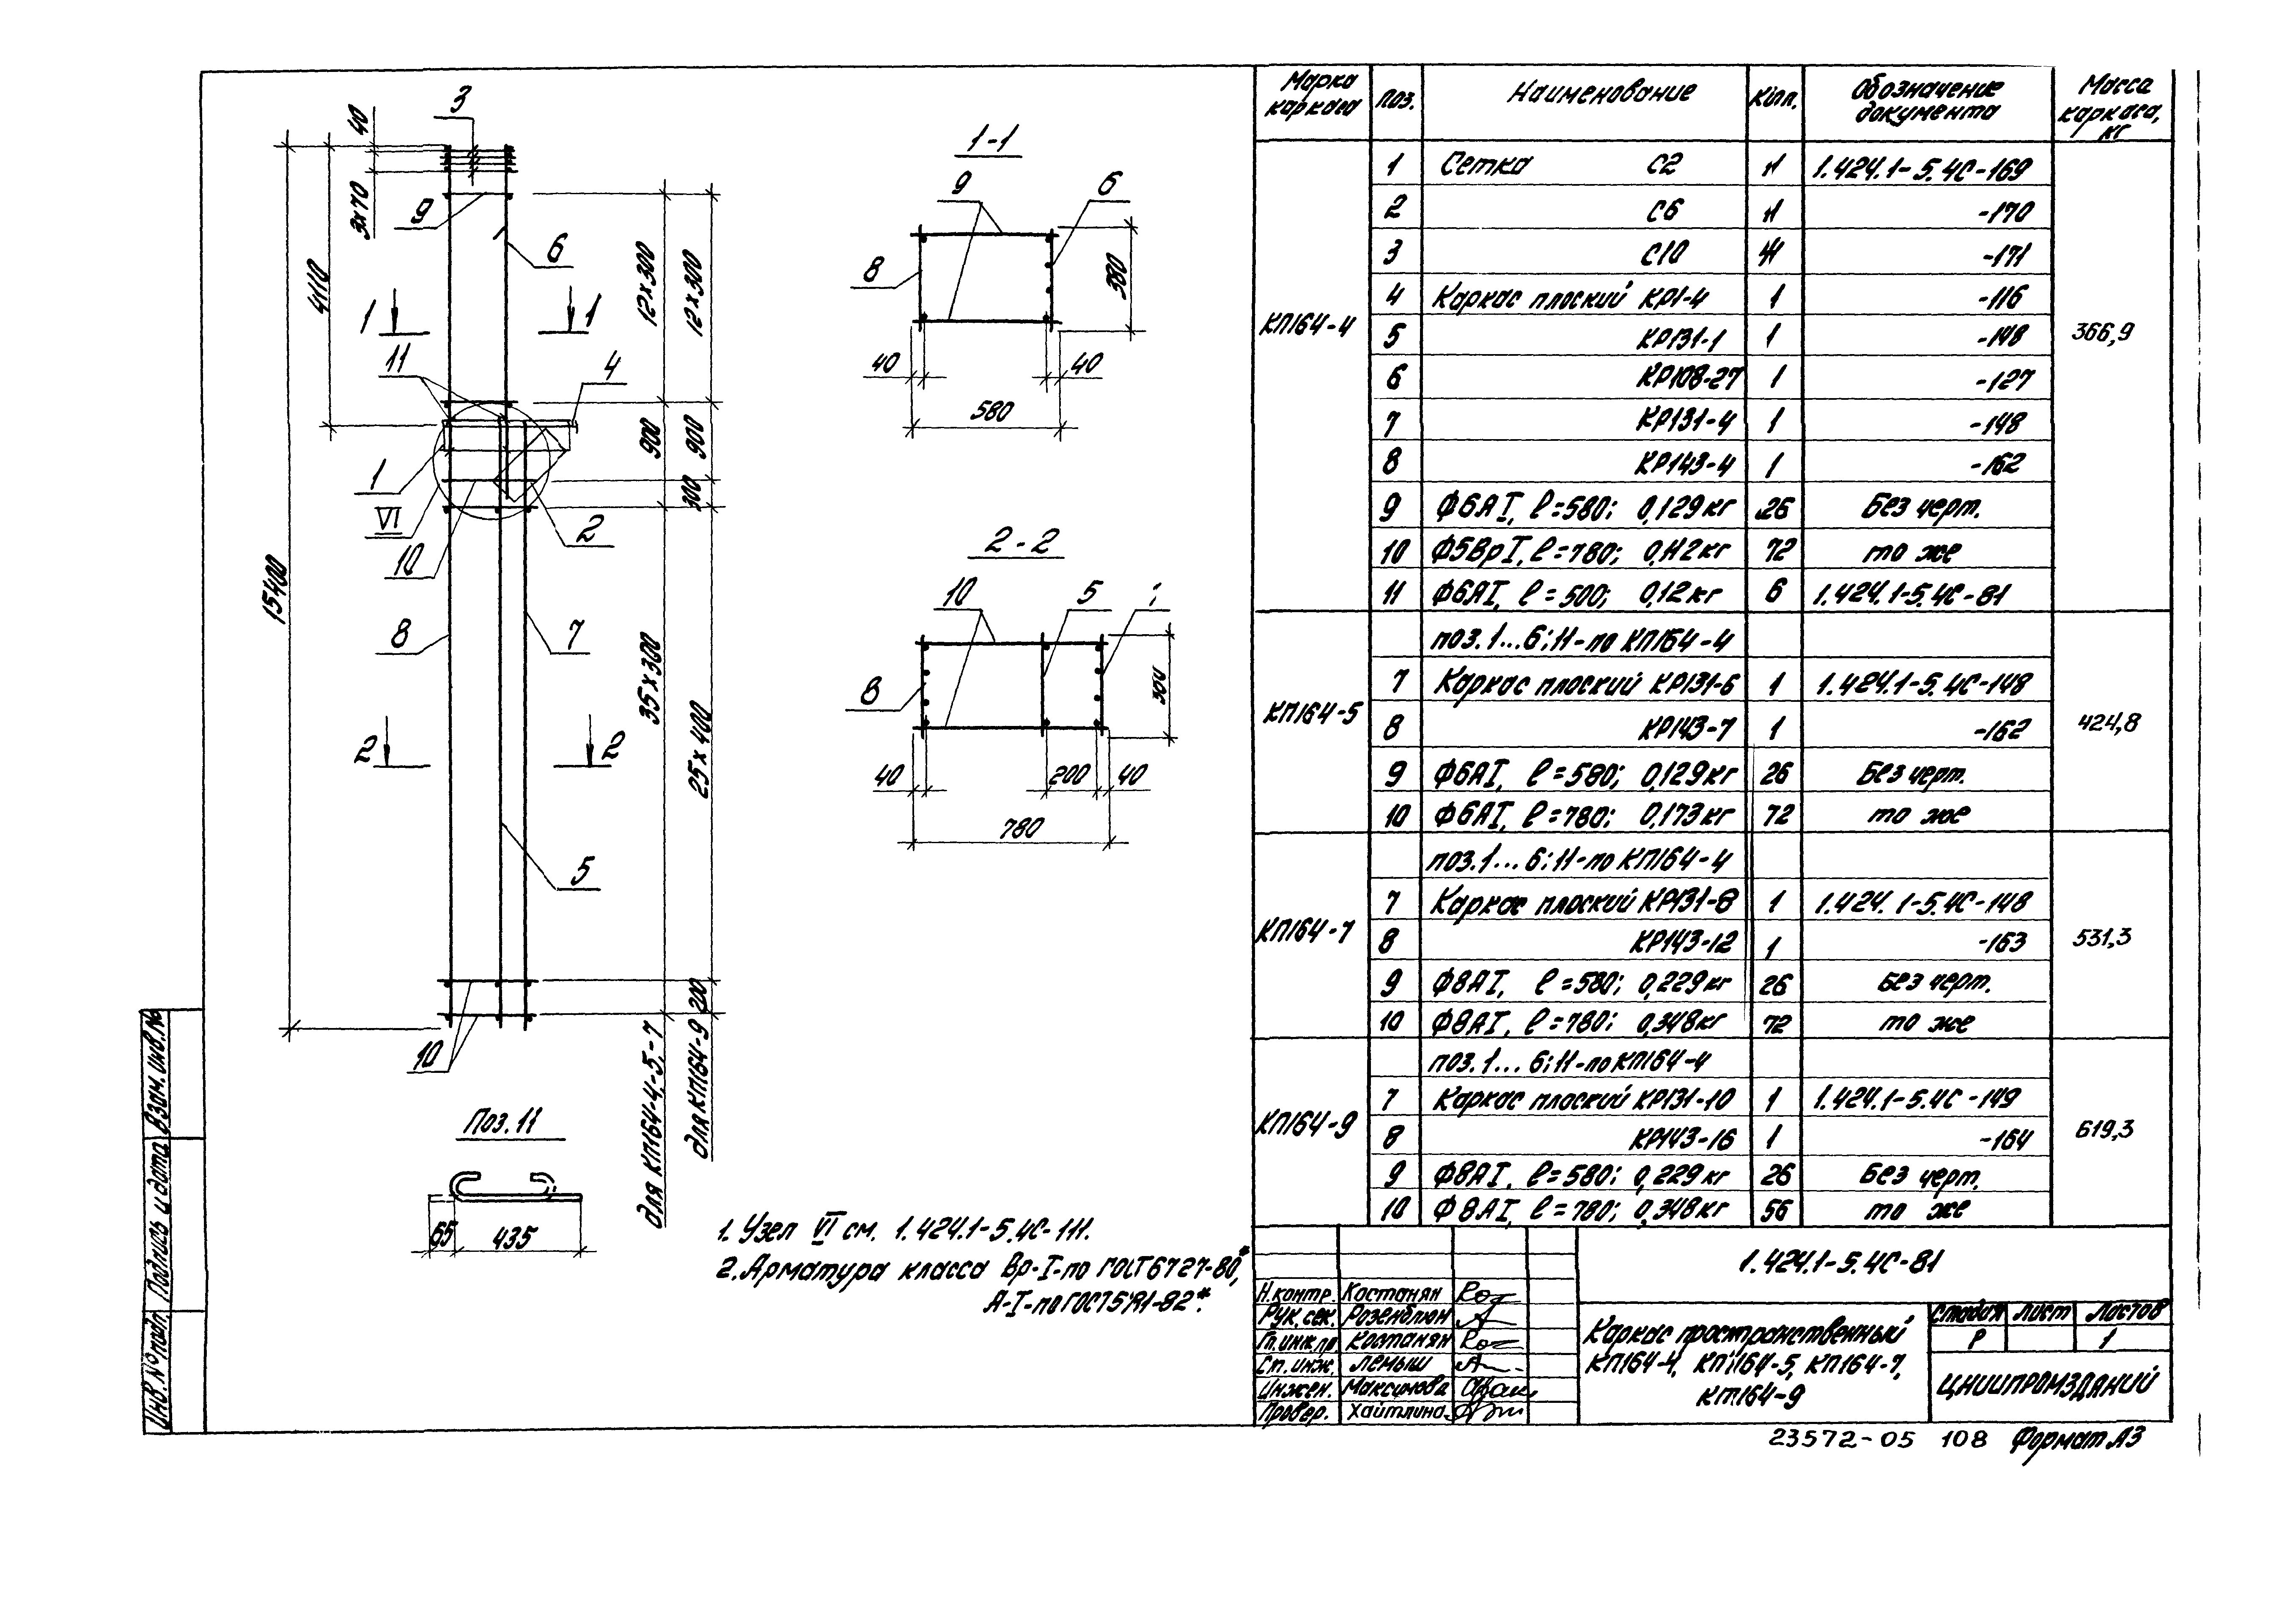 3
40
3х70
9
6
4110
12х300
12х300
1
1
11
4
900
900
300
1
VI
2
10
15400
8
7
35х300
25х400
2
2
5
200
10
для КП164-4,-5,-7
для КП164-9
1-1
9
6
8
380
40
40
580
2-2
10
5
8
40
200
40
780
Поз. 11
65
435
1. Узел VI см. 1.424.1-5.4С-111.
2. Арматура класса Вр-I-по ГОСТ 6727-80,*
А-I-по ГОСТ 5781-82*.
Марка каркаса Поз. Наименование Кол. Обозначение документа Масса каркаса, кг
КП164-4 366,9
1 Сетка С2 1.424.1-5.4С-169
2 С6 -170
3 С10 -171
4 Каркас плоский КР1-4 1 -116
5 КР131-1 1 -148
6 КР108-27 1 -127
7 КР131-4 1 -148
8 КР143-4 1 -162
9 Ф6АI, ℓ=580; 0,129кг 26 Без черт.
10 Ф5ВрI, ℓ=780; 0,112кг 72 то же
11 Ф6АI, ℓ=500; 0,12кг 6 1.424.1-5.4С-81
КП164-5 424,8
поз. 1...6; 11-по КП164-4
7 Каркас плоский КР131-6 1 1.424.1-5.4С-148
8 КР143-7 1 -162
9 Ф6АI, ℓ=580; 0,129кг 26 Без черт.
10 Ф6АI, ℓ=780; 0,173кг 72 то же
КП164-7 531,3
поз. 1...6; 11-по КП164-4
7 Каркас плоский КР131-8 1 1.424.1-5.4С-148
8 КР143-12 1 -163
9 Ф8АI, ℓ=580; 0,229кг 26 Без черт.
10 Ф8АI, ℓ=780; 0,348кг 72 то же
КП164-9 619,3
поз. 1...6; 11-по КП164-4
7 Каркас плоский КР131-10 1 1.424.1-5.4С-149
8 КР143-16 1 -164
9 Ф8АI, ℓ=580; 0,229кг 26 Без черт.
10 Ф8АI, ℓ=780; 0,348кг 56 то же
1.424.1-5.4С-81
Н.контр. Костанян
Рук. сек. Розенблюм
Гл.инж.пр Костанян
Ст. инж. Лемыш
Инжен. Максимова
Провер. Хайтлина
Каркас пространственный
КП164-4, КП164-5, КП164-7,
КП164-9
Стадия Лист Листов
Р 1
ЦНИИПРОМЗДАНИЙ
23572-05 108 Формат А3
Взам. инв.№
Подпись и дата
Инв. № подл.